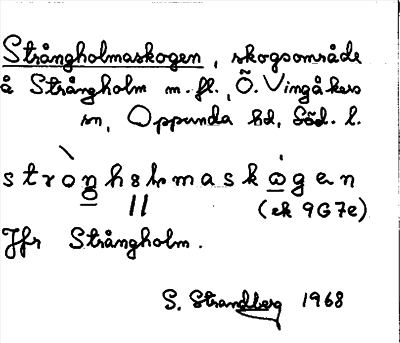 Strångholmaskogen, skogsområde
å Strångholm m. fl., Ö. Vingåkers
sn, Oppunda hd, Söd. l.
strònhɷmaskɷgen
(ek 9G7e)
Jfr Strångholm.
S. Strandberg 1968